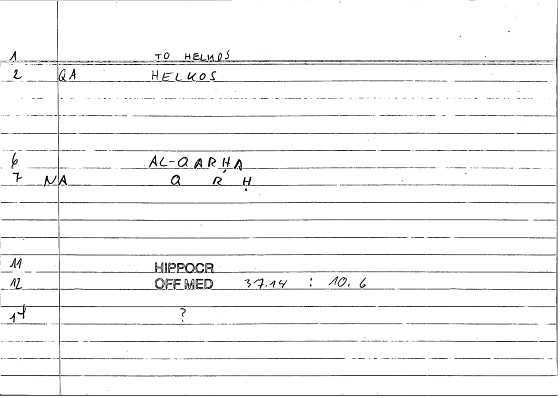 1 TO HELKOS
2 QA HELKOS
6 AL-QARḤA
7 NA Q R Ḥ
11 HIPPOCR
12 OFF MED 37.14 : 10.6
14 ?